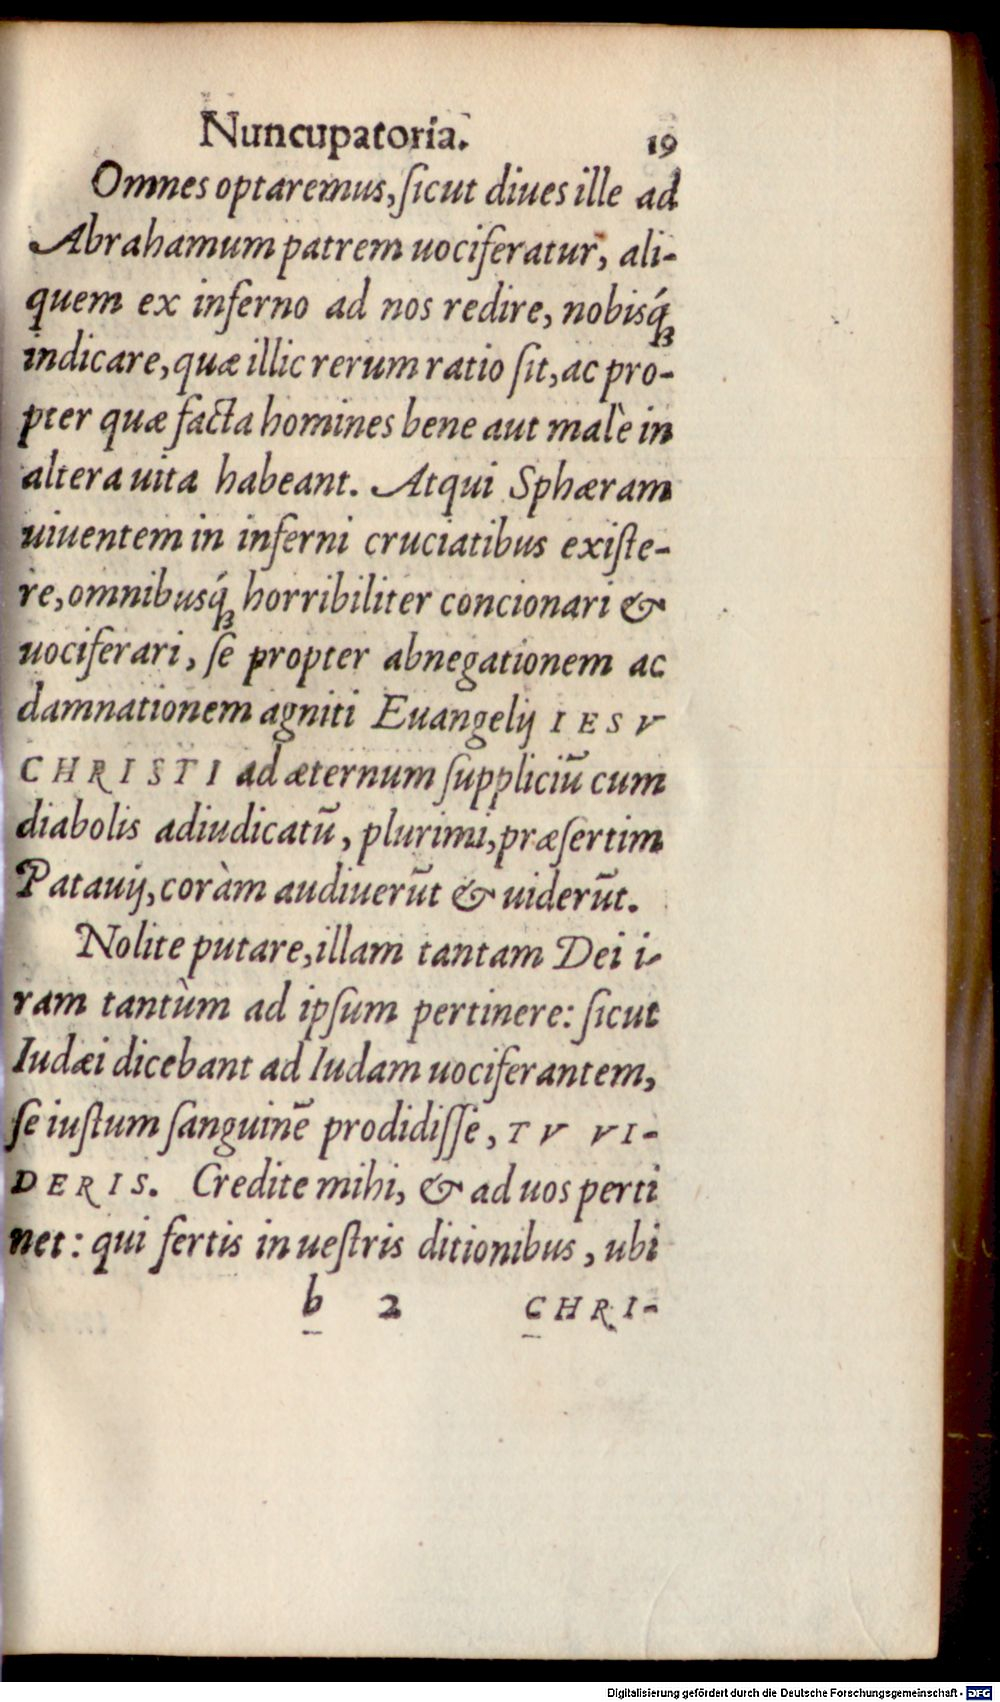 Nuncupatoria. 19
Omnes optaremus, ſicut diues ille ad
Abrahamum patrem uociferatur, ali-
quem ex inferno ad nos redire, nobisq́ꝫ
indicare, quæ illic rerum ratio ſit, ac pro-
pter quæ facta homines bene aut malè in
altera uita habeant. Atqui Sphæram
uiuentem in inferni cruciatibus exiſte-
re, omnibusq́ꝫ horribiliter concionari &
uociferari, ſe propter abnegationem ac
damnationem agniti Euangelij IESV
CHRISTI ad æternum ſuppliciū cum
diabolis adiudicatū, plurimi, præſertim
Patauij, coràm audiuerūt & uiderūt.
Nolite putare, illam tantam Dei i-
ram tantùm ad ipſum pertinere: ſicut
Iudæi dicebant ad Iudam uociferantem,
ſe iuſtum ſanguinē prodidiſſe, TV VI-
DERIS. Credite mihi, & ad uos perti
net: qui fertis in ueſtris ditionibus, ubi
b 2 CHRI-
Digitalisierung gefördert durch die Deutsche Forschungsgemeinschaft - DFG